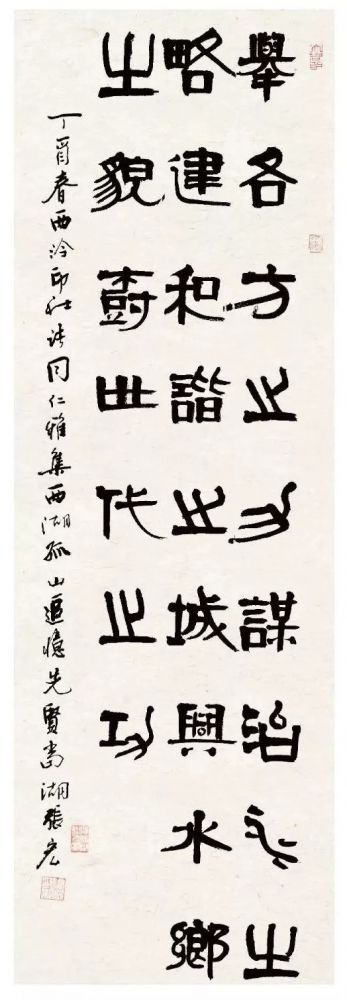 舉各方之力謀治之
略建和諧之城興水鄉
之貌尌世代之功
丁酉春西泠印社诸同仁雅集西湖孤山追憶先賢當湖張宏